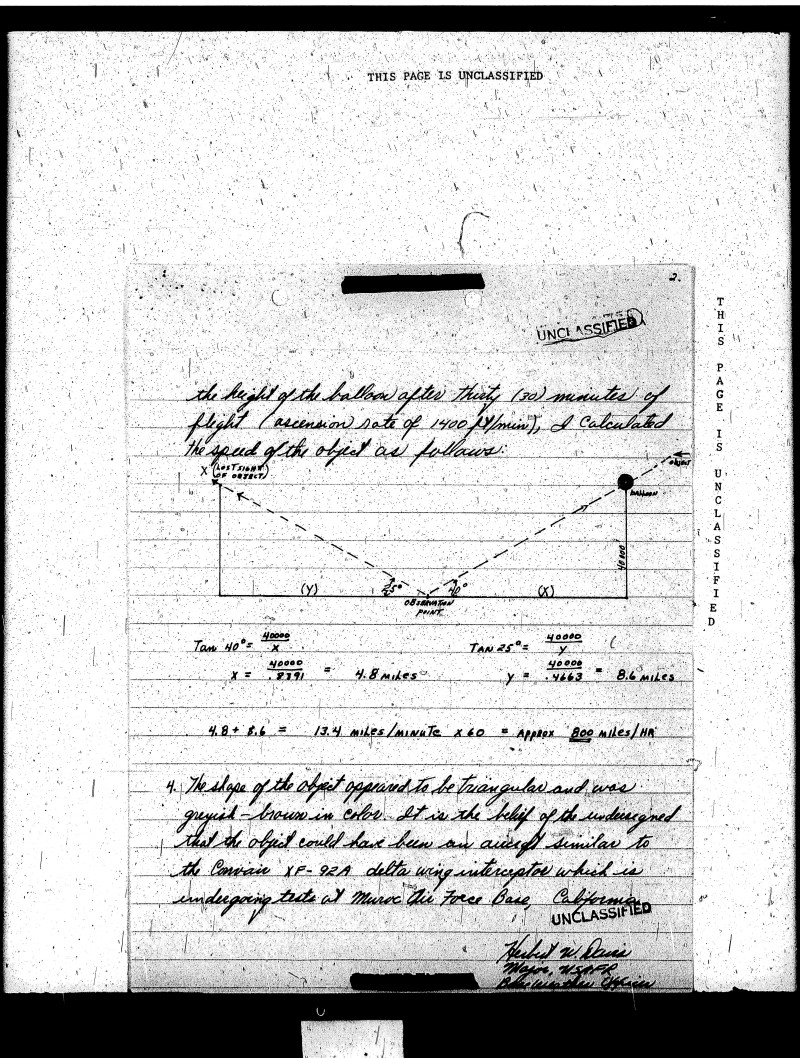 THIS PAGE IS UNCLASSIFIED
2.
UNCLASSIFIED
the height of the balloon after thirty (30) minutes of
flight (ascension rate of 1400 ft/min), I calculated
the speed of the object as follows:
X (LOST SIGHT OF OBJECT)
OBJECT
BALLOON
40000'
(Y) 25° 40° (X)
OBSERVATION
POINT.
Tan 40° = 40000 / X
TAN 25° = 40000 / Y
X = 40000 / .8391 = 4.8 MILES
Y = 40000 / .4663 = 8.6 MILES
4.8 + 8.6 = 13.4 MILES/MINUTE X 60 = APPROX 800 MILES/HR
4. The shape of the object appeared to be triangular and was
greyish-brown in color. It is the belief of the undersigned
that the object could have been an aircraft similar to
the Convair XF-92A delta wing interceptor which is
undergoing tests at Muroc Air Force Base, California
UNCLASSIFIED
Herbert W. Davis
Major, USAFR
Base Weather Officer
THIS PAGE IS UNCLASSIFIED